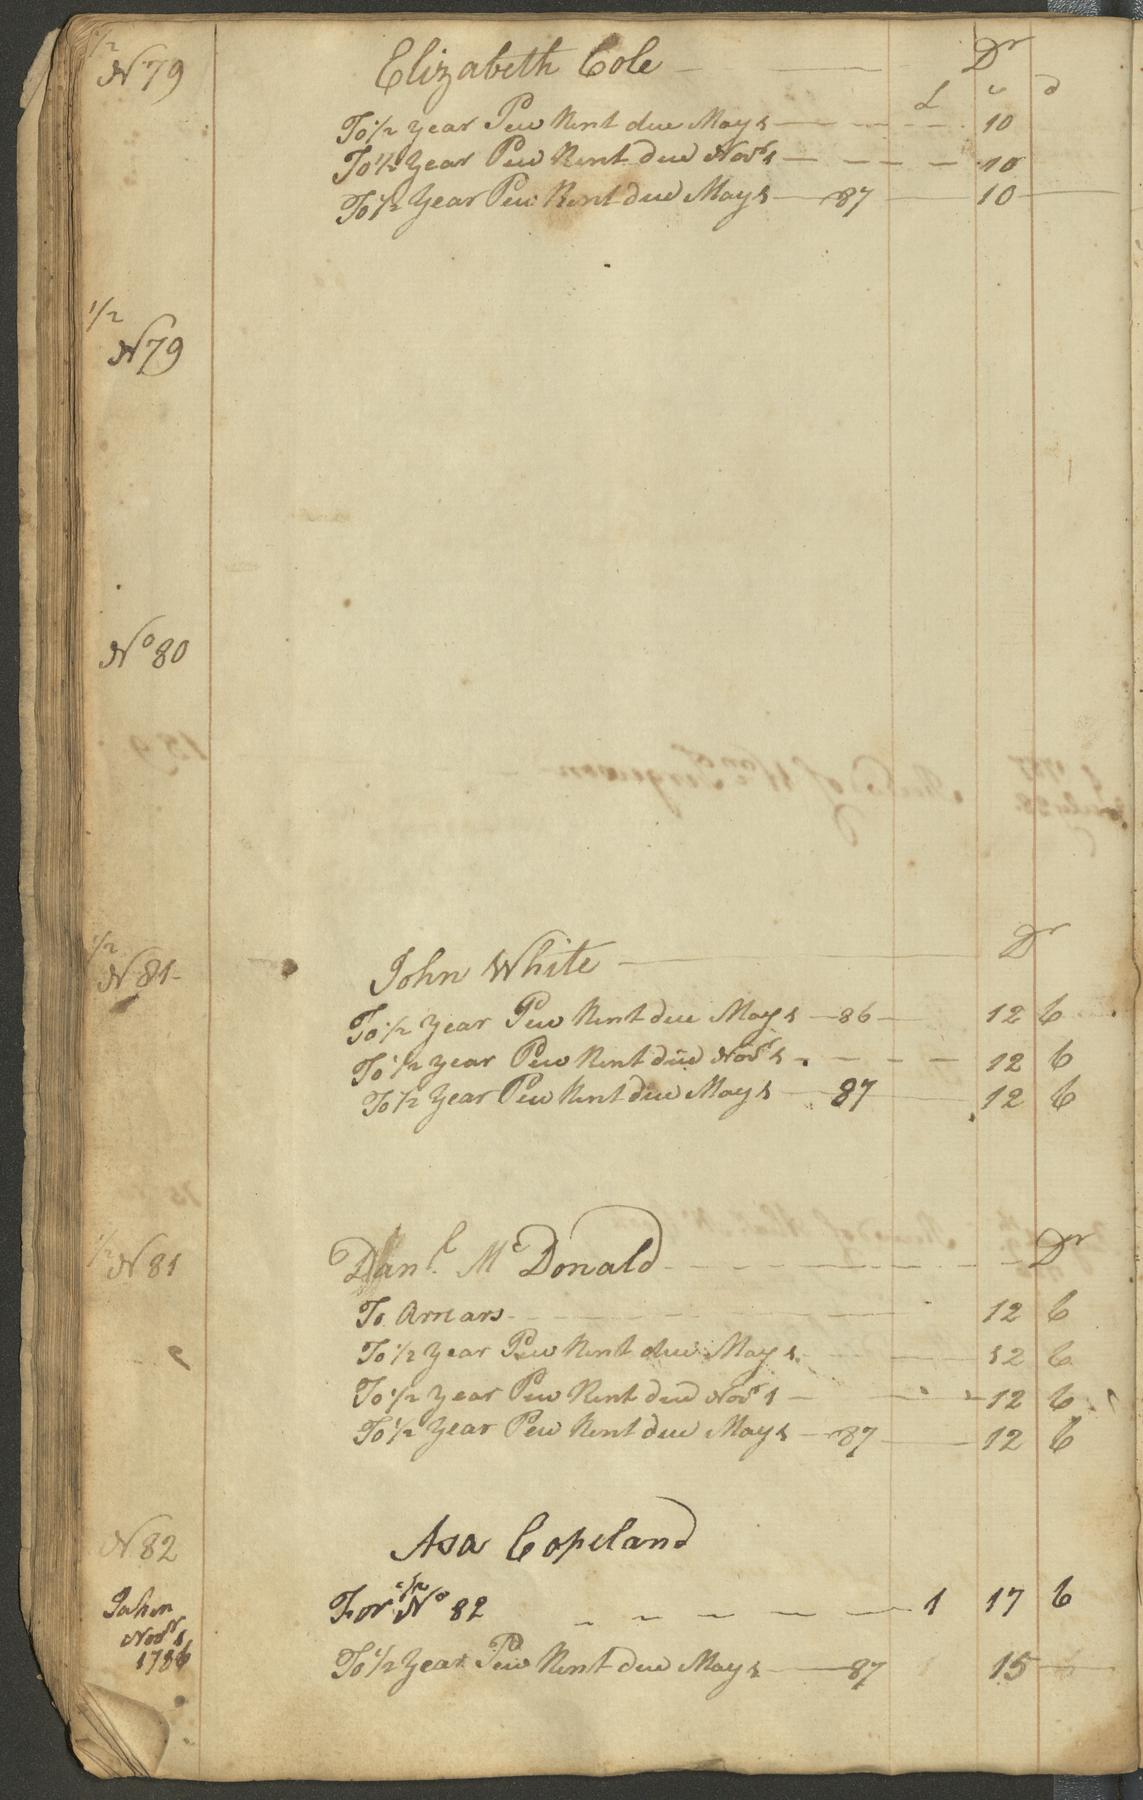 1/2
N 79 Elizabeth Cole Dr
£ s d
To 1/2 year Pew Rent due May 1 10
To 1/2 Year Pew Rent due Novr 1 10
To 1/2 Year Pew Rent due May 1 87 10
1/2
N 79
No 80
1/2
N 81 John White Dr
To 1/2 Year Pew Rent due May 1 86 12 6
To 1/2 year Pew Rent due Novr 1 12 6
To 1/2 Year Pew Rent due May 1 87 12 6
1/2
N 81 Danl. McDonald Dr
To Arrears 12 6
To 1/2 Year Pew Rent due May 1 12 6
To 1/2 Year Pew Rent due Novr 1 12 6
To 1/2 Year Pew Rent due May 1 87 12 6
N 82 Asa Copeland
Taken
Novr 1
1786
For 1/2 No 82 1 17 6
To 1/2 Year Pew Rent due May 1 87 15